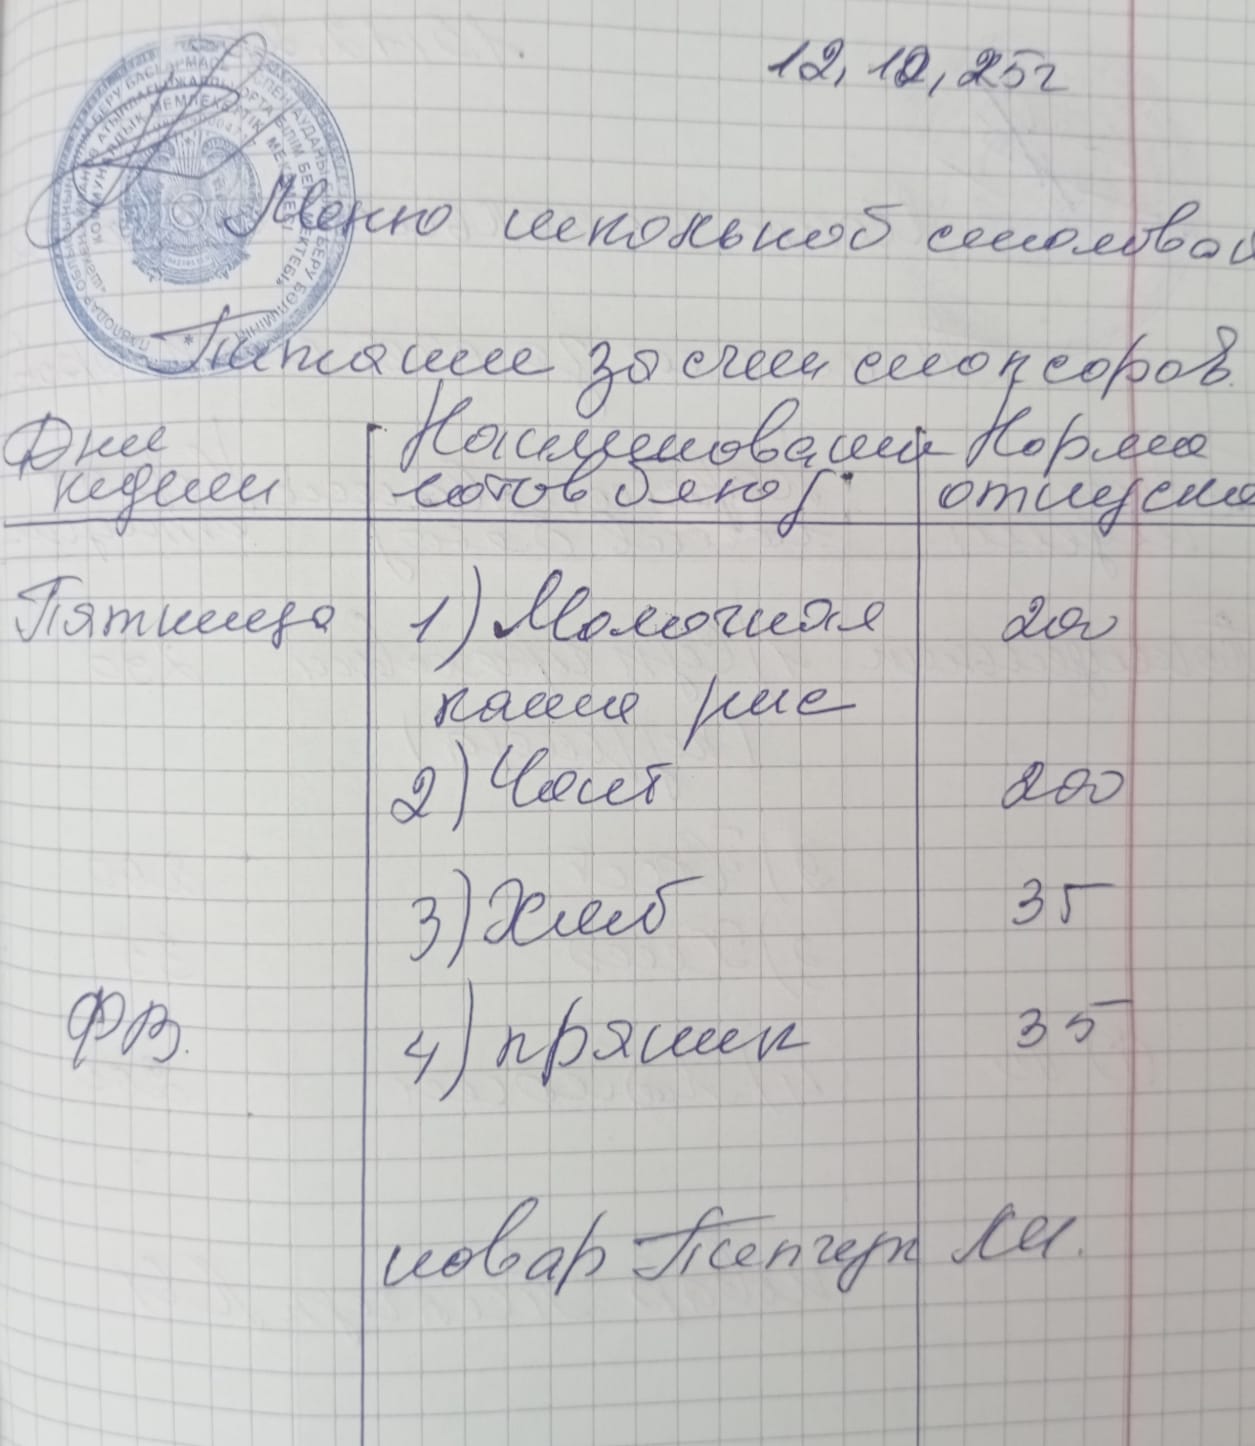 12, 12, 25г
Меню школьной столовой
Питание за счет спонсоров.
Дни недели
Наименование готов блюд
Норма отпуска
Пятница 1) Молочная 200
каша рис
2) Чай 200
3) Хлеб 35
ФВ. 4) пряник 35
повар